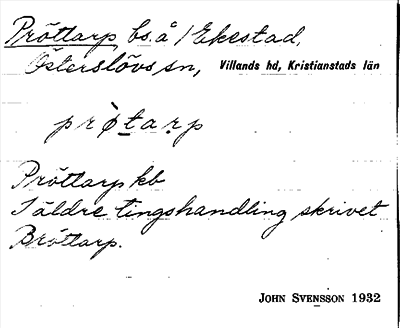 Pröttarp, bs. å /Ekestad,
Österslövs sn, Villands hd, Kristianstads län
prö̀ta.rp
Pröttarp kb
I äldre tingshandling skrivet
Bröttarp.
JOHN SVENSSON 1932